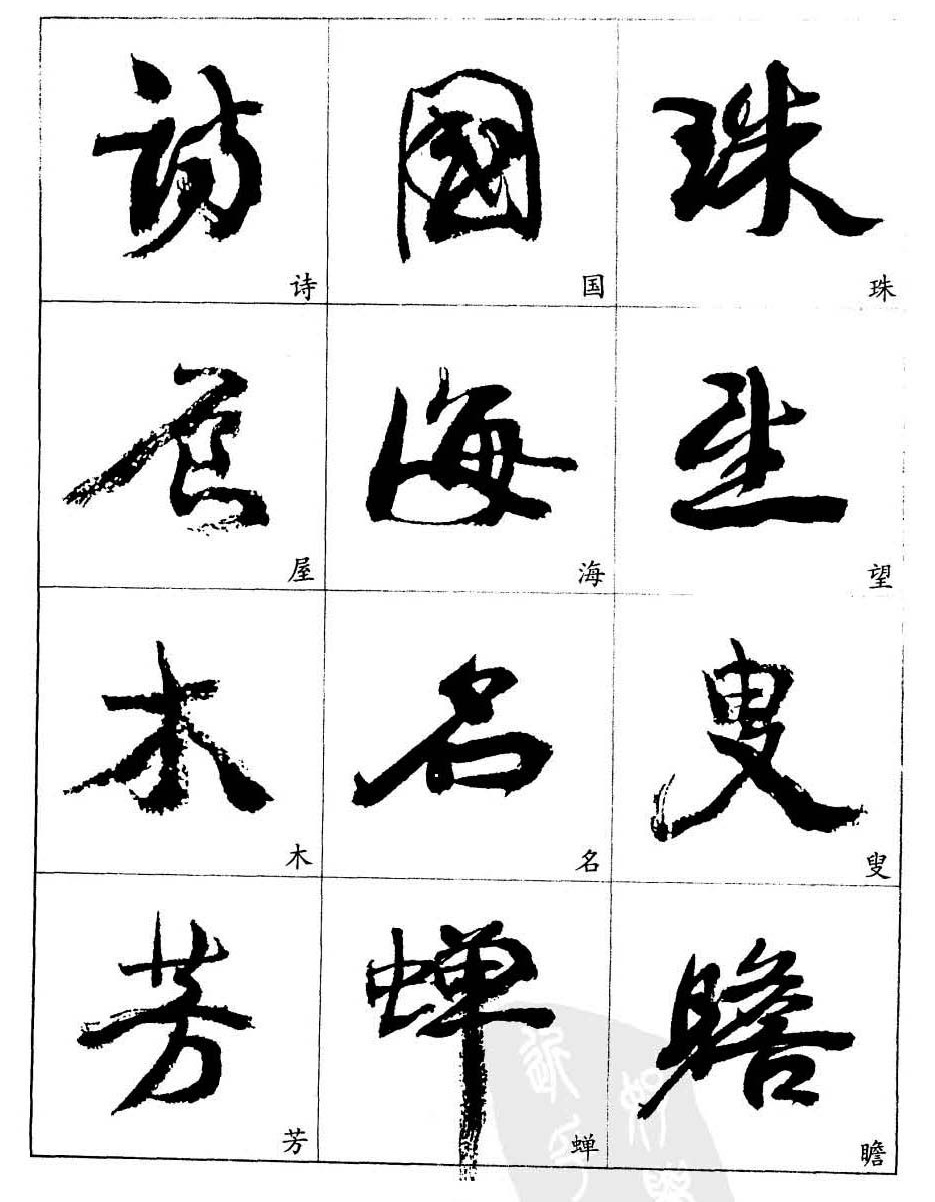 詩 國 珠
诗 国 珠
屋 海 望
屋 海 望
木 名 叟
木 名 叟
芳 蟬 瞻
芳 蝉 瞻